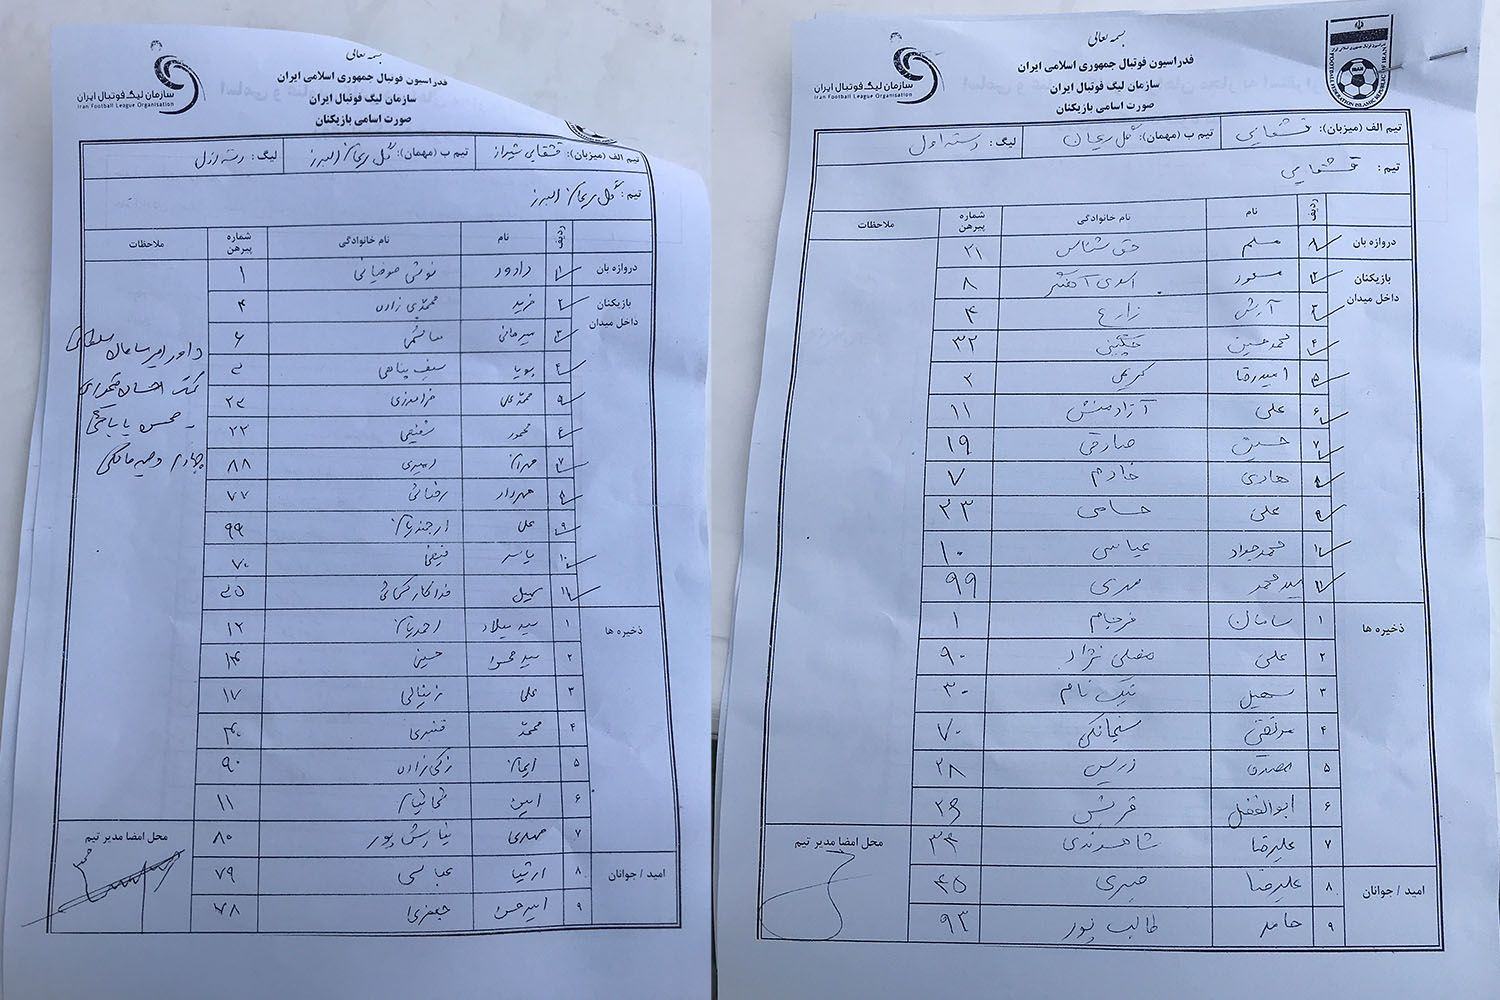 بسمه تعالی
فدراسیون فوتبال جمهوری اسلامی ایران
سازمان لیگ فوتبال ایران
صورت اسامی بازیکنان
سازمان لیگ فوتبال ایران
Iran Football League Organisation
تیم الف (میزبان): قشقایی شیراز تیم ب (مهمان): گل ریحان البرز لیگ: دسته اول
تیم: گل ریحان البرز
ردیف نام نام خانوادگی شماره پیرهن ملاحظات
دروازه بان
۱ ۱
بازیکنان داخل میدان
۲ فرید محمدی زاده ۴
۳ ۶
۴ پویا سیف پناهی
محمدعلی فرامرزی
۶ محمود شفیعی ۲۲
۷ مهران امیری ۸۸
۸ مهرداد رضائی ۷۷
۹ علی ۹۹
۱۰ یاسر فیضی ۷۰
۱۱ سهیل
ذخیره ها
۱ سید میلاد احمدیان ۱۲
۲ حسینی
۳ علی زینالی ۱۷
۴ محمد قنبری
۵ ایمان زکی زاده ۹۰
۶ امین ۱۱
۷ مهدی نیایش پور ۸۰
امید / جوانان
۸ ارشیا عباسی ۷۹
۹ امیرحسن جعفری ۷۸
محل امضا مدیر تیم
داور امیرسامان سلطانی
کمک
چهارم
بسمه تعالی
فدراسیون فوتبال جمهوری اسلامی ایران
سازمان لیگ فوتبال ایران
صورت اسامی بازیکنان
سازمان لیگ فوتبال ایران
Iran Football League Organisation
FOOTBALL FEDERATION ISLAMIC REPUBLIC OF IRAN
تیم الف (میزبان): قشقایی تیم ب (مهمان): گل ریحان لیگ: دسته اول
تیم: قشقایی
ردیف نام نام خانوادگی شماره پیرهن ملاحظات
دروازه بان
مسلم حق شناس ۲۱
بازیکنان داخل میدان
مسعود ۸
۳ آرش زارع ۴
۴ محمدحسین چگینی ۳۲
۵ امیدرضا کریمی ۲
۶ علی آزادمنش ۱۱
۷ حسین صادقی ۱۹
۸ هادی خادم ۷
۹ علی حسامی ۲۳
۱۰ محمدجواد عباسی ۱۰
۱۱ سیدمحمد مهدی ۹۹
ذخیره ها
۱ سامان فرجام ۱
۲ علی مصلی نژاد ۹۰
۳ سهیل نیک نام ۳۰
۴ مرتضی سلیمانی ۷۰
۵ ۲۸
۶ ابوالفضل قریشی
۷ علیرضا شاهوندی
امید / جوانان
۸ علیرضا صبری ۴۵
۹ حامد طالب پور ۹۳
محل امضا مدیر تیم